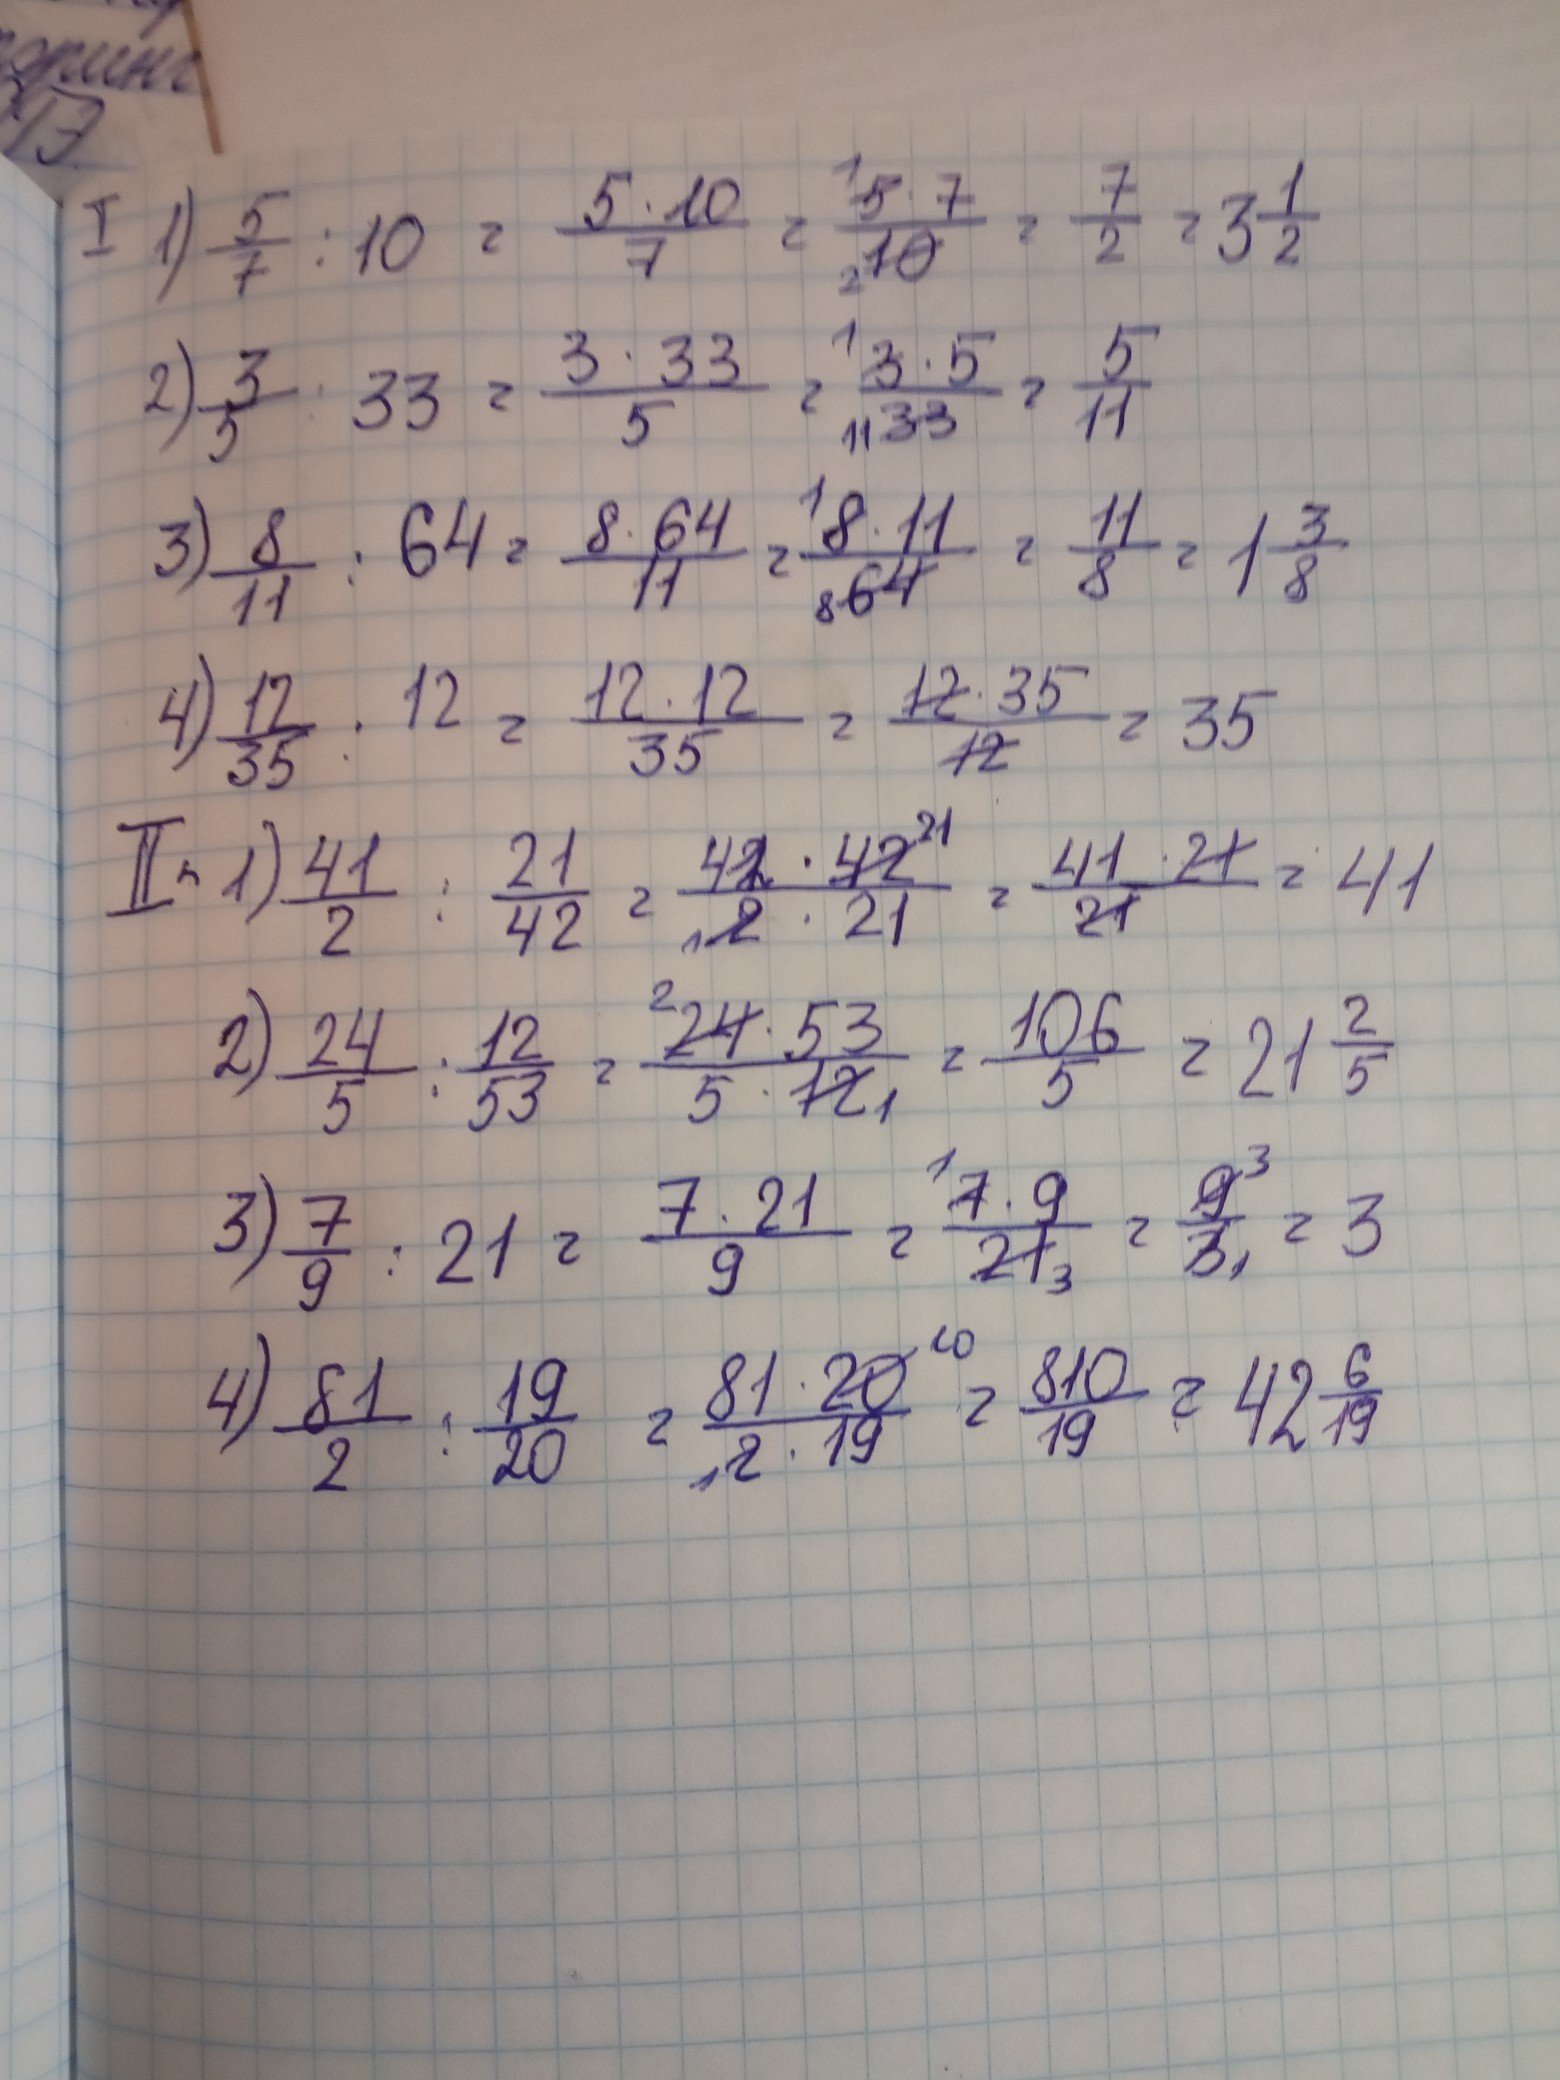 I 1) 5/7 : 10 = 5·10/7 = ¹5·7/₂10 = 7/2 = 3 1/2
2) 3/5 : 33 = 3·33/5 = ¹3·5/₁₁33 = 5/11
3) 8/11 : 64 = 8·64/11 = ¹8·11/₈64 = 11/8 = 1 3/8
4) 12/35 : 12 = 12·12/35 = 12·35/12 = 35
II 1) 41/2 : 21/42 = 41·42²¹/₁2·21 = 41·21/21 = 41
2) 24/5 : 12/53 = ²24·53/5·12₁ = 106/5 = 21 2/5
3) 7/9 : 21 = 7·21/9 = ¹7·9/21₃ = 9³/3₁ = 3
4) 81/2 : 19/20 = 81·20¹⁰/₁2·19 = 810/19 = 42 6/19